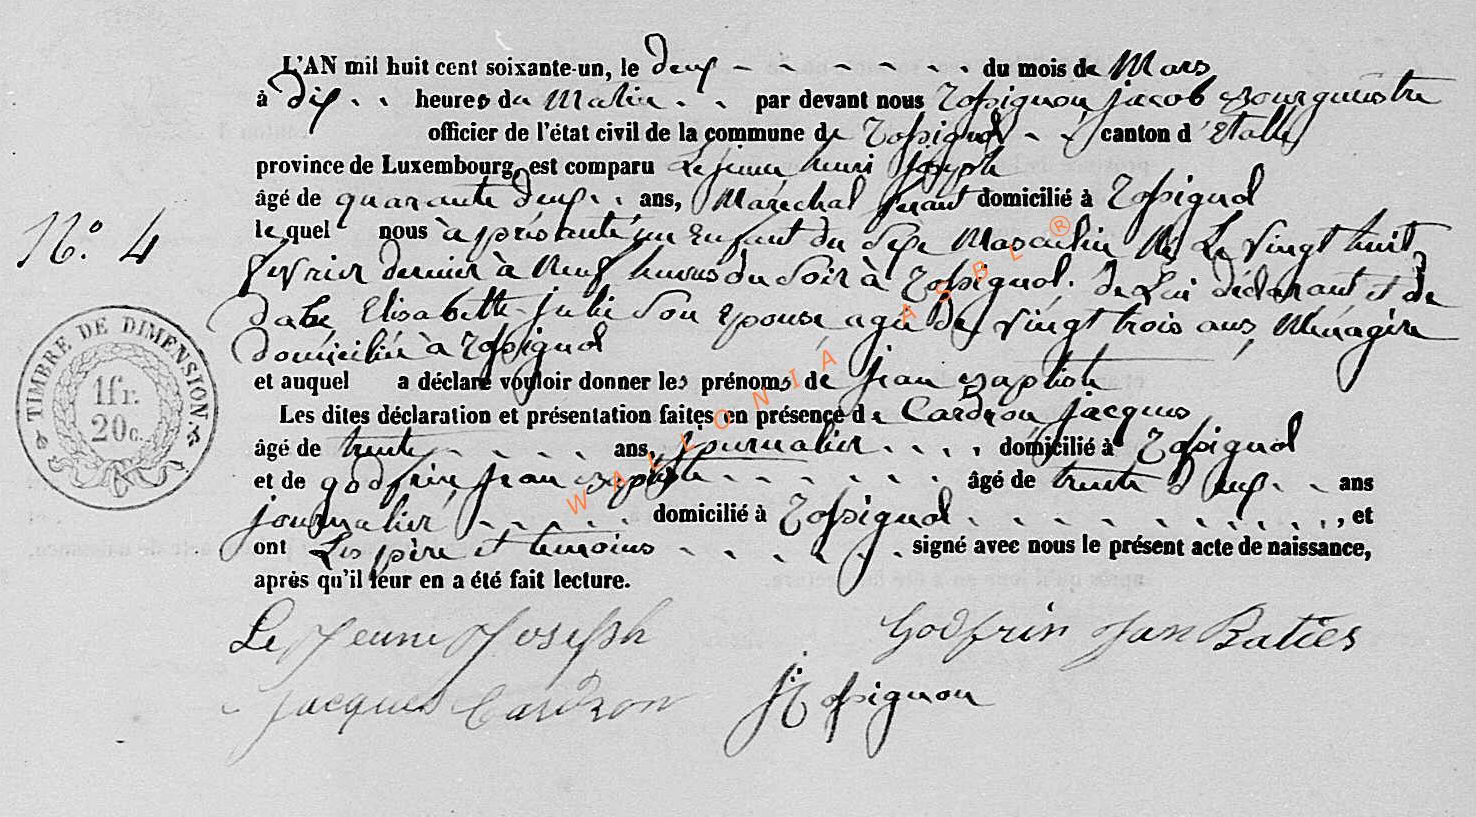 L'AN mil huit cent soixante-un, le deux - - - - - - - du mois de Mars
à dix - - heures du Matin - - par devant nous Rossignon jacob Bourgmestre
officier de l'état civil de la commune de Rossignol - - canton d'Etalle
province de Luxembourg, est comparu Lejeune henri Joseph
âgé de quarante deux - - ans, Maréchal ferant domicilié à Rossignol
le quel nous à présenté un Enfant du Sexe Masculin Né Le Vingt huit
N° 4
fevrier dernier à Neuf heures du Soir à Rossignol. de Lui déclarant et de
Elisabette julie Son Epouse agée de Vingt trois ans, Ménagère
domiciliée à Rossignol
et auquel a déclaré vouloir donner les prénoms de jean Baptiste
Les dites déclaration et présentation faites en présence de Cardron jacques
âgé de trente - - - - - ans, journalier - - - - domicilié à Rossignol
et de godfrin jean Baptiste - - - - - - - âgé de trente deux - - ans
journalier - - - - - domicilié à Rossignol - - - - - - - - - -, et
ont Les père et temoins - - - - - - signé avec nous le présent acte de naissance,
après qu'il leur en a été fait lecture.
TIMBRE DE DIMENSION
1 fr.
20 c.
Le Jeune Joseph
Godfrin Jan Baties
Jacques Cardron
JRossignon
WALLONIA ASBL ®